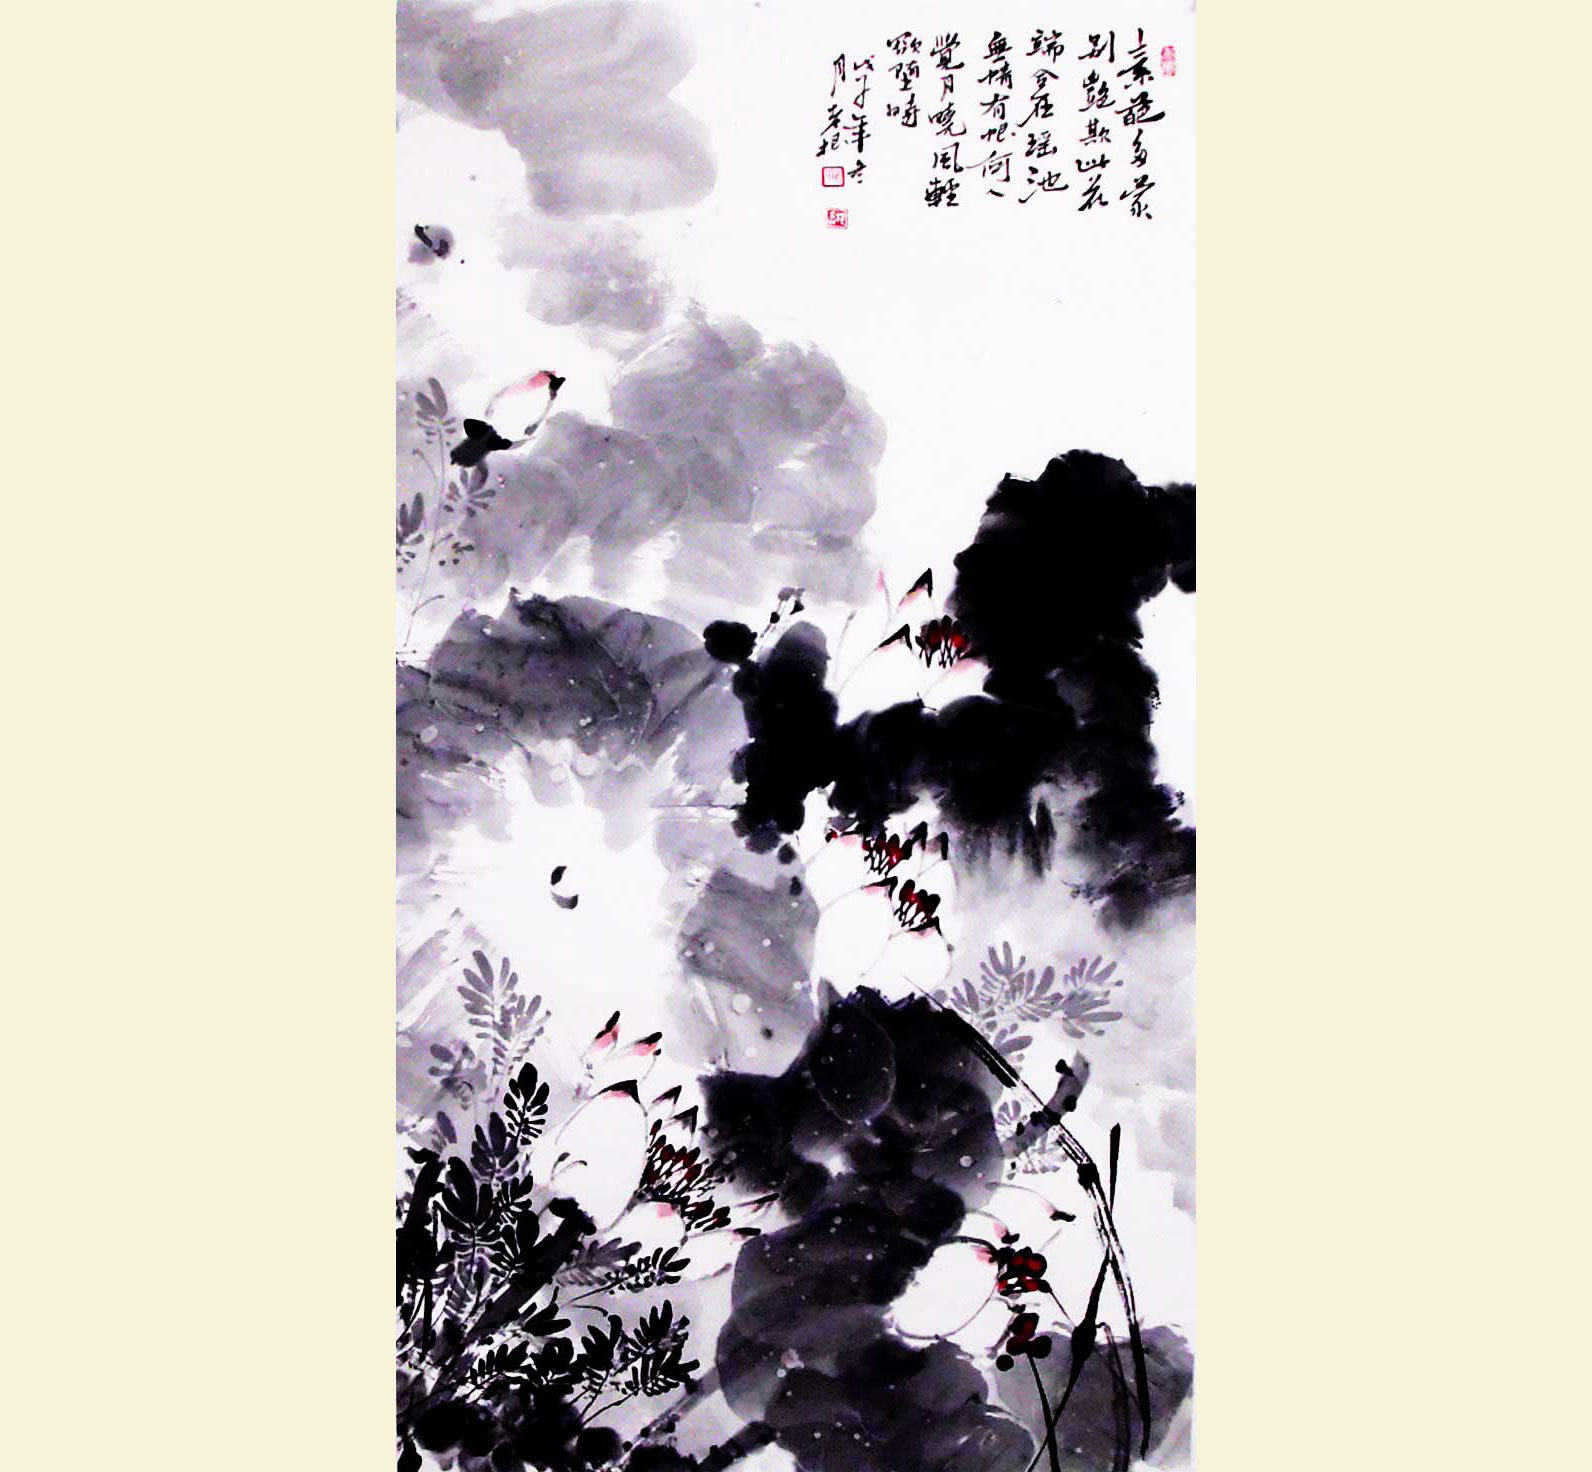 素多蒙
别豔欺此花
端合在瑶池
無情有恨何人
覺月曉風輕
欲墮時
戊子年冬
月